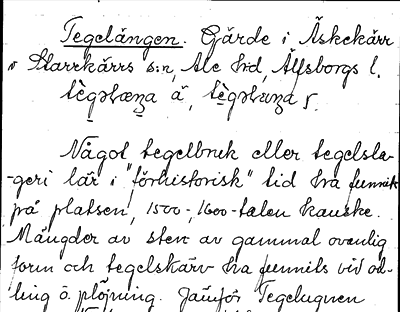 Tegelängen. Gärde i Äskekärr
v Starrkärrs s:n, Ale hrd, Älfsborgs l.
å, r.
Något tegelbruk eller tegelsla-
-geri lär i "förhistorisk" tid ha funnits
på platsen, 1500-, 1600-talen kanske.
Mängder av sten av gammal ovanlig
form och tegelskärv ha funnits vid od-
-ling o. plöjning. Jämför Tegelugnen